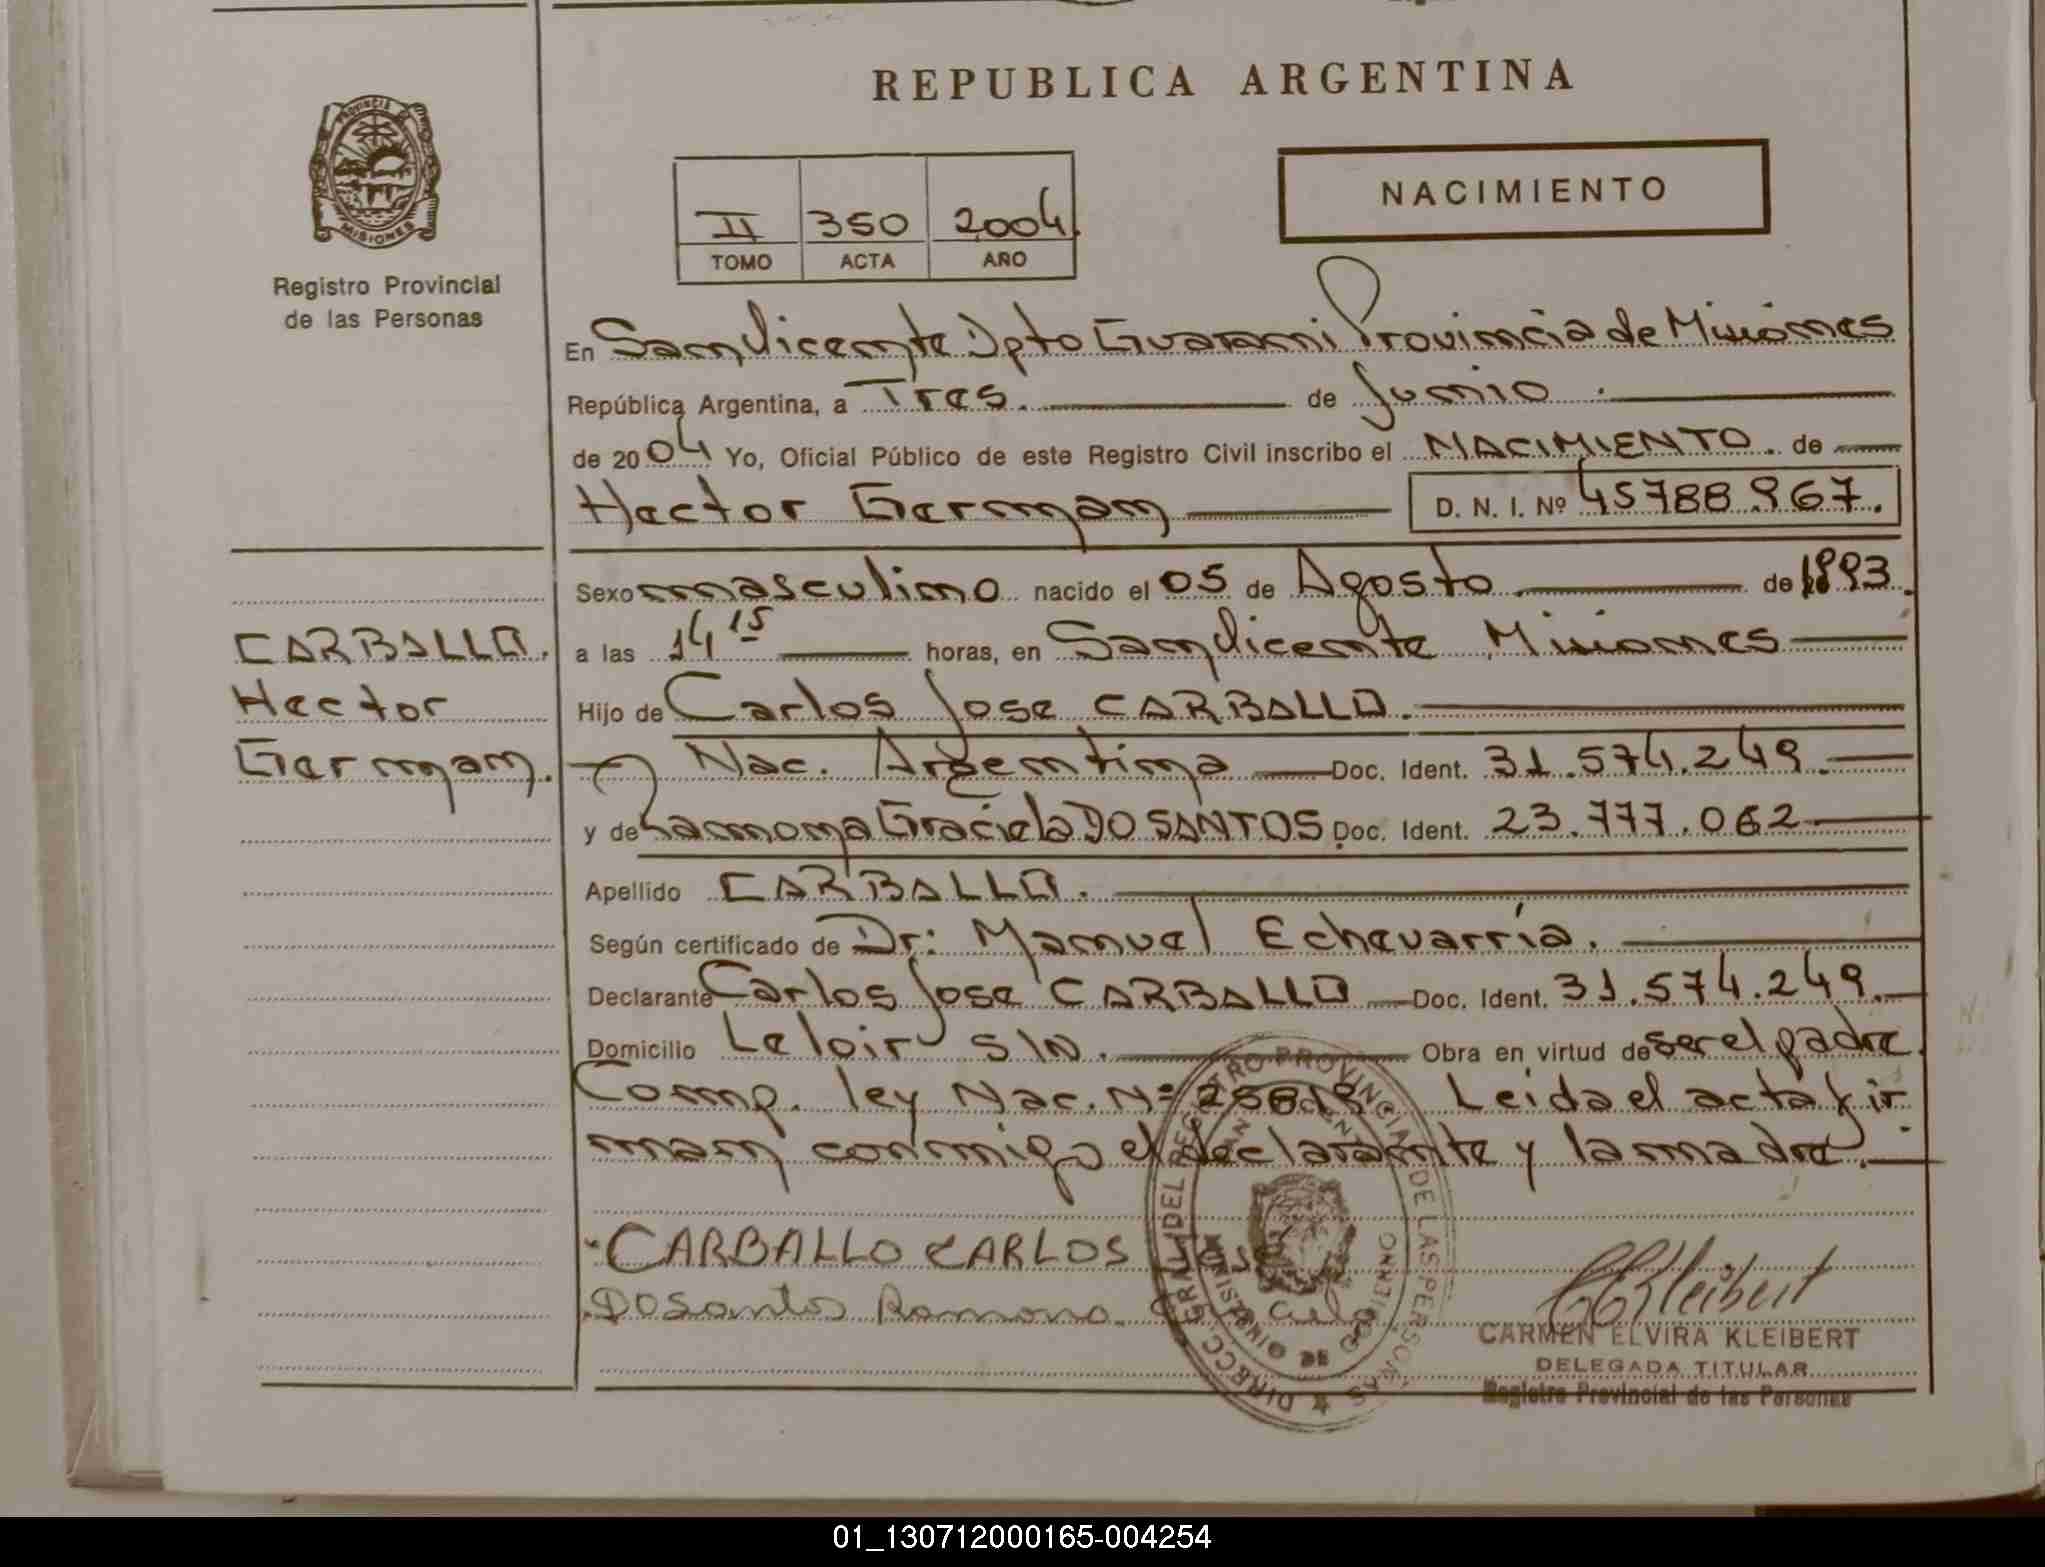 REPUBLICA ARGENTINA
PROVINCIA
MISIONES
Registro Provincial
de las Personas
II 350 2004
TOMO ACTA AÑO
NACIMIENTO
En San Vicente Dpto Guarani Provincia de Misiones
República Argentina, a Tres. de Junio.
de 2004 Yo, Oficial Público de este Registro Civil inscribo el NACIMIENTO. de
Hector German D. N. I. Nº 45788.967.
Sexo masculino nacido el 05 de Agosto de 1993.
CARBALLO.
a las 14 15 horas, en San Vicente Misiones
Hector
Hijo de Carlos Jose CARBALLO.
German.
Nac. Argentina Doc. Ident. 31.574.249.
y de Ramona Graciela DO SANTOS Doc. Ident. 23.777.062
Apellido CARBALLO.
Según certificado de Dr: Manuel Echevarría.
Declarante Carlos Jose CARBALLO Doc. Ident. 31.574.249.
Domicilio Leloir S/N. Obra en virtud de ser el padre.
Comp. ley Nac. Nº 25819 Leida el acta fir
man conmigo el declarante y la madre.
CARBALLO CARLOS Jose
DO Santos Ramona
DIRECC. GRAL. DEL REGISTRO PROVINCIAL DE LAS PERSONAS
MINISTERIO DE GOBIERNO
CKleibert
CARMEN ELVIRA KLEIBERT
DELEGADA TITULAR
Registro Provincial de las Personas
01_130712000165-004254